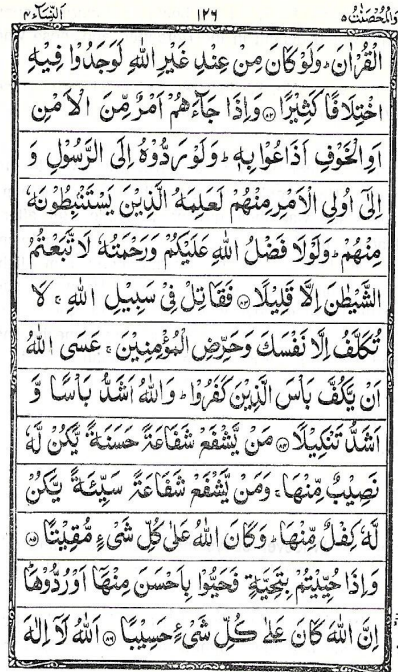 وَالْمُحْصَنٰتُ ٥ ١٢٦ اَلنِّسَآء ٤
الْقُرْاٰنَ ؕ وَلَوْ كَانَ مِنْ عِنْدِ غَيْرِ اللّٰهِ لَوَجَدُوْا فِيْهِ
اخْتِلَافًا كَثِيْرًا ﴿۸۲﴾ وَاِذَا جَآءَهُمْ اَمْرٌ مِّنَ الْاَمْنِ
اَوِ الْخَوْفِ اَذَاعُوْا بِهٖ ؕ وَلَوْ رَدُّوْهُ اِلَى الرَّسُوْلِ وَ
اِلٰٓى اُولِى الْاَمْرِ مِنْهُمْ لَعَلِمَهُ الَّذِيْنَ يَسْتَنْۢبِطُوْنَهٗ
مِنْهُمْ ؕ وَلَوْلَا فَضْلُ اللّٰهِ عَلَيْكُمْ وَرَحْمَتُهٗ لَاتَّبَعْتُمُ
الشَّيْطٰنَ اِلَّا قَلِيْلًا ﴿۸۳﴾ فَقَاتِلْ فِيْ سَبِيْلِ اللّٰهِ ۚ لَا
تُكَلَّفُ اِلَّا نَفْسَكَ وَحَرِّضِ الْمُؤْمِنِيْنَ ۚ عَسَى اللّٰهُ
اَنْ يَّكُفَّ بَاْسَ الَّذِيْنَ كَفَرُوْا ؕ وَاللّٰهُ اَشَدُّ بَاْسًا وَّ
اَشَدُّ تَنْكِيْلًا ﴿۸۴﴾ مَنْ يَّشْفَعْ شَفَاعَةً حَسَنَةً يَّكُنْ لَّهٗ
نَصِيْبٌ مِّنْهَا ۚ وَمَنْ يَّشْفَعْ شَفَاعَةً سَيِّئَةً يَّكُنْ
لَّهٗ كِفْلٌ مِّنْهَا ؕ وَكَانَ اللّٰهُ عَلٰى كُلِّ شَيْءٍ مُّقِيْتًا ﴿۸۵﴾
وَاِذَا حُيِّيْتُمْ بِتَحِيَّةٍ فَحَيُّوْا بِاَحْسَنَ مِنْهَآ اَوْ رُدُّوْهَا ؕ
اِنَّ اللّٰهَ كَانَ عَلٰى كُلِّ شَيْءٍ حَسِيْبًا ﴿۸۶﴾ اَللّٰهُ لَآ اِلٰهَ